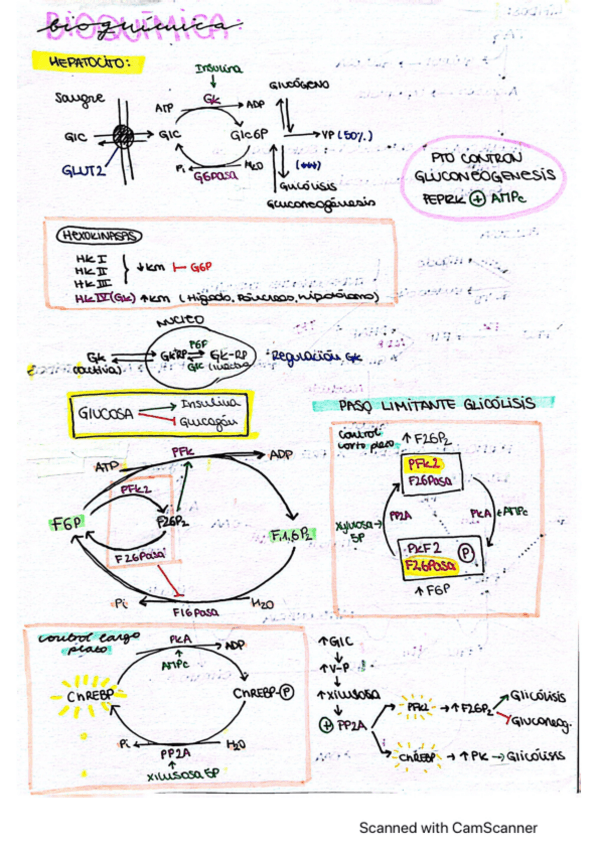 BIOQUÍMICA
bioquímica
HEPATOCITO:
Insulina
Sangre
Gk
GLUCÓGENO
ATP
ADP
GlC
GlC
GlC6P
VP (50%)
GLUT2
Pi
H2O
G6Pasa
(***)
GLUCÓLISIS
Gluconeogénesis
PTO CONTROL
GLUCONEOGENESIS
PEPCK + AMPc
HEXOKINASAS
HK I
HK II
HK III
↓km
G6P
HK IV (Gk) ↑km (Hígado, Páncreas, Hipotálamo)
NUCLEO
Gk
(activa)
GkRP
F6P
GlC
Gk-RP
(inactiva)
Regulación Gk
GLUCOSA
Insulina
Glucagón
PASO LIMITANTE GLICÓLISIS
control
corto plazo
↑ F26P2
PFK2
F26Pasa
PP2A
PKA
+AMPc
Xylulosa
5P
PKF2
P
F26Pasa
↑ F6P
PFK
ATP
ADP
PFK2
F6P
F26P2
F1,6P2
F26Pasa
Pi
H2O
F16Pasa
control largo
plazo
PKA
ADP
AMPc
ChREBP
ChREBP-P
Pi
H2O
PP2A
xilulosa 5P
↑GlC
↑V-P
↑xilulosa
+ PP2A
PFK2 → ↑F26P2
Glicólisis
Gluconeog.
ChREBP → ↑ PK → Glicólisis
Scanned with CamScanner